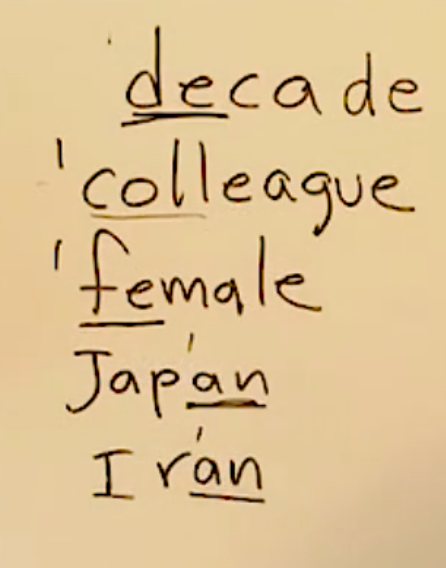 'decade
'colleague
'female
Jap'an
Ir'an